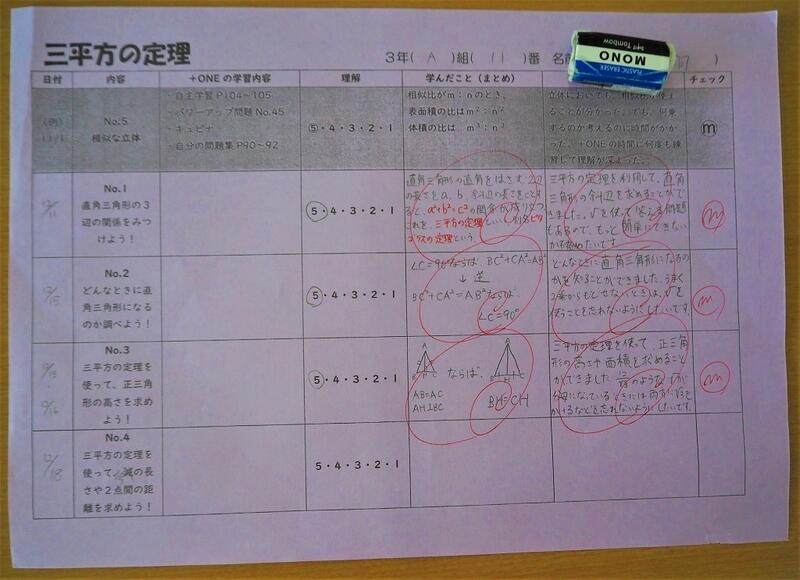 三平方の定理
3年( A )組( 11 )番 名前
PLASTIC ERASER
MONO
Tombow
日付 内容 +ONEの学習内容 理解 学んだこと（まとめ） チェック
(例)
11/1
No.5
相似な立体
・自主学習 P104～105
・パワーアップ問題 No.45
・キュビナ
・自分の問題集 P90～92
⑤・4・3・2・1
相似比がm：nのとき、
表面積の比はm²：n²
体積の比は m³：n³
立体においても、相似比が使え
ることが分かった。でも、何乗
するのか考えるのに時間がかか
った。+ONEの時間に何度も練
習して理解が深まった。
m
12/11
No.1
直角三角形の3
辺の関係をみつ
けよう！
⑤・4・3・2・1
直角三角形の直角をはさむ2辺
の長さをa、b、斜辺の長さをcとす
ると、a²+b²=c²の関係が成り立つ
これを、三平方の定理といい、別名ピタ
ゴラスの定理という。
三平方の定理を利用して、直角
三角形の斜辺を求めることがで
きました。√を使って答える問題
もあるので、もっと簡単にできない
か確かめたいです。
m
12/15
No.2
どんなときに直
角三角形になる
のか調べよう！
⑤・4・3・2・1
∠C=90°ならば BC²+CA²=AB²
↓逆
BC²+CA²=AB²ならば
∠C=90°
どんなときに直角三角形になるの
かを知ることができました。うまく
2乗からもどせないときは、√を
使うことを忘れないようにしたいです。
m
12/15
12/16
No.3
三平方の定理を
使って、正三角
形の高さを求め
よう！
⑤・4・3・2・1
A
B H C
ならば、
A
B H C
AB=AC
AH⊥BC
BH=CH
三平方の定理を使って、正三角
形の高さや面積を求めること
ができました。12/√3のような、√が
分母になっているときには両方に√3を
かけるなどを忘れないようにしたいです。
m
12/18
No.4
三平方の定理を
使って、弧の長
さや2点間の距
離を求めよう！
5・4・3・2・1